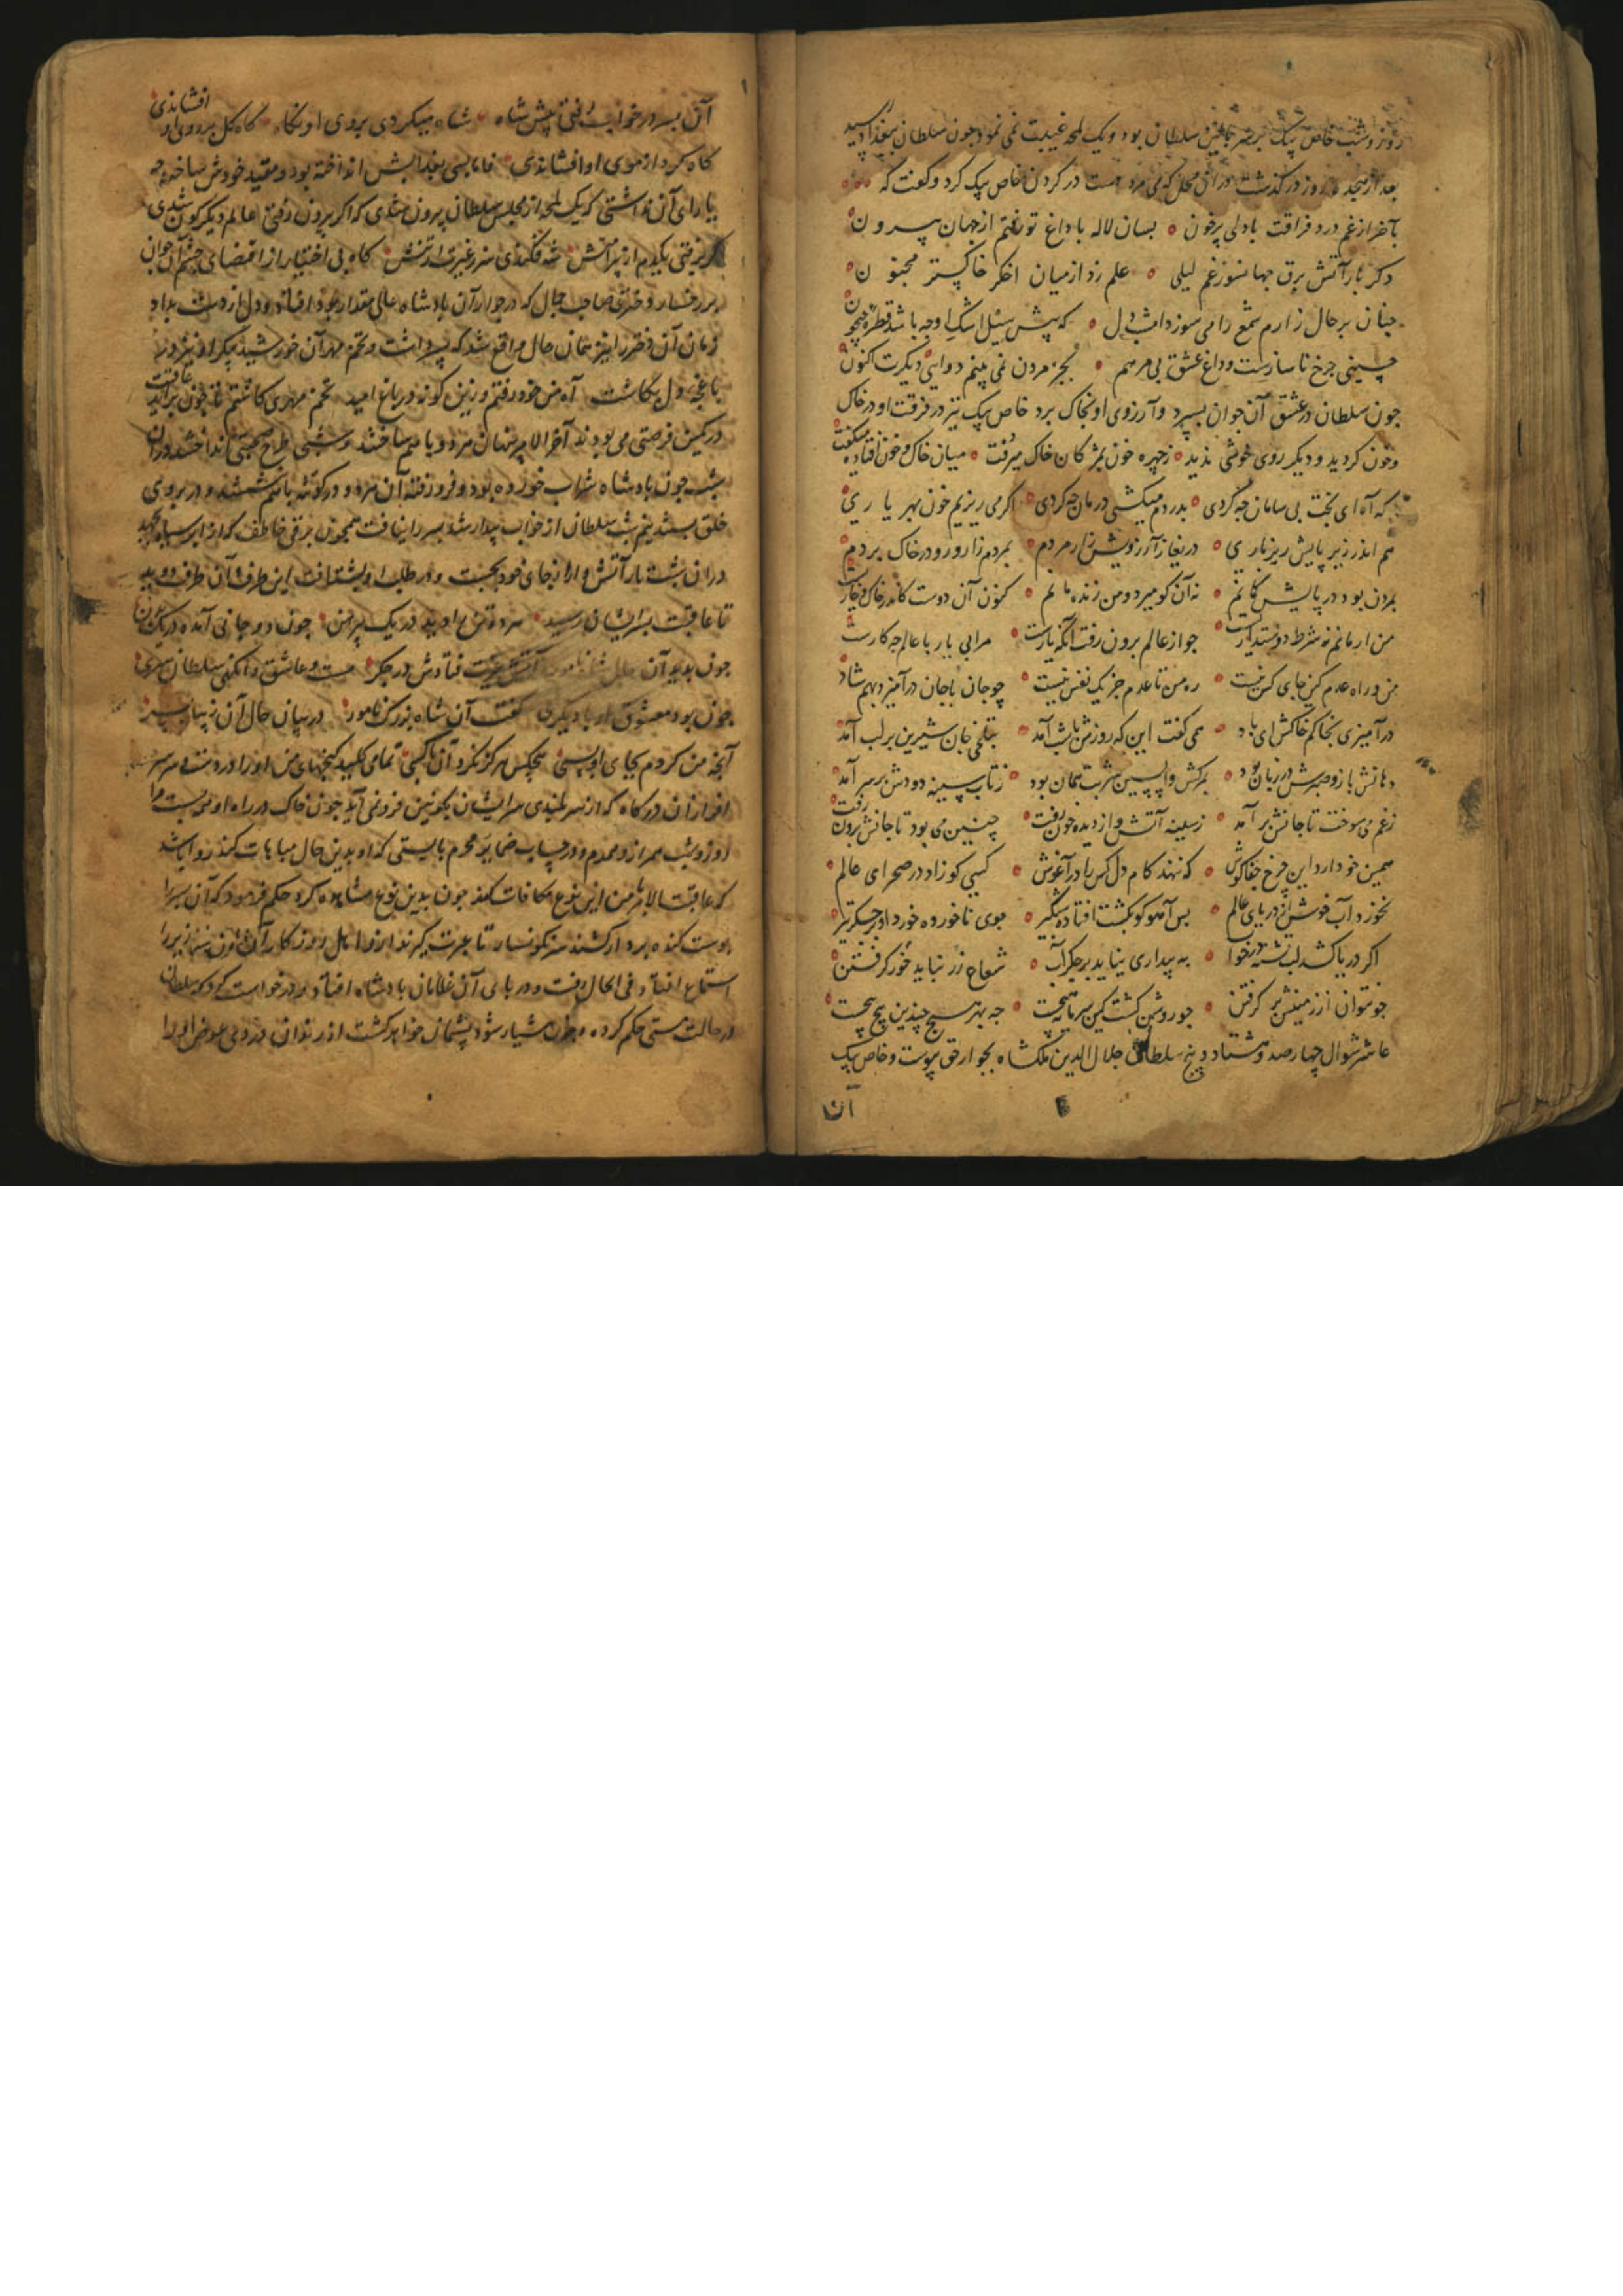 روز و شب خاص بیک بر سر بالین سلطان بود و یک لمحه غیبت نمی نمود جون سلطان ببغداد رسید
بعد از هجده روز درگذشت در آن محل که می مرد دست در گردن خاص بیک کرد و گفت که
بآخر از غم درد فراقت با دلی پرخون بسان لاله با داغ تو رفتم از جهان بیرون
دکر بار آتش برق جهانسوز غم لیلی علم زد از میان اخکر خاکستر مجنون
جنان بر حال زارم شمع را می سوزد امشب دل که پیش سیل اشک او چه باشد قطره جیحون
چنینی جرخ ناسازست و داغ عشق بی مرهم بجز مردن نمی بینم دوایی دیکرت اکنون
جون سلطان در عشق آن جوان بسپرد و آرزوی او بخاک برد خاص بیک نیز در فرقت او در خاک
وخون کردید و دیکر روی خوشی ندید ز چهره خون بمژکان خاک میرفت میان خاک و خون افتاده میکفت
که آه ای بخت بی سامان چه کردی بدردم میکشی درمان چه کردی اکر می ریزیم خون بهر یاری
هم اندر زیر پایش ریز باری دریغا ز آرزویش زار مردم بمردم زار و رو در خاک بردم
بمردن بود در پایش کمانم نه آن کو میرد و من زنده مانم کنون آن دوست کاندر خاک و خارست
من ار مانم نه شرط دوستداریست جو از عالم برون رفت آنکه یارست مرا بی یار با عالم چه کارست
من و راه عدم کین جای کس نیست ره من تا عدم جز یک نفس نیست چو جان با جان درآمیزد بهم شاد
درآمیزی بخاکم خاکش ای باد همی گفت این که روزش با شب آمد بتلخی جان شیرین بر لب آمد
دهانش باز و صبرش در زبان بود بمرکش واپسین شربت همان بود ز تاب سینه دودش بر سر آمد
ز غم می سوخت تا جانش برآمد ز سینه آتش و از دیده خون رفت چنین می بود تا جانش برون رفت
همین خو دارد این جرخ جفاکوش که ننهد کام دل کس را در آغوش کسی کو زاد در صحرای عالم
نخورد آب خوش از دریای عالم بس آهو کو بکشت افتاده شبگیر جوی ناخورده خورد اندر جگر تیر
اگر دریا کشد لب تشنه در خواب به بیداری نیاید بر جگر آب شعاع زر نیاید خور گرفتن
جو نتوان از زمینش بر گرفتن جو روشن گشت کین سرمایه هیچست چه بهر هیچ چندین پیچ پیچست
عاشر شوال چهارصد و هشتاد و پنج سلطان جلال الدین ملکشاه بجوار حق پیوست و خاص بیک
آن پسر در خواب رفتی پیش شاه شاه میکردی بروی او نگاه گاه گل بر روی او افشاندی
گاه کرد از موی او افشاندی
یارای آن نداشتی که یک لمحه از مجلس سلطان بیرون شدی که اگر بیرون رفتی عالم دیگرگون شدی
گر برفتی یکدم از پیرامنش شه فکندی سر ز غیرت از تنش گاه بی اختیار از اقتضای چشم آن جوان
بر رخسار دختری صاحب جمال که در جوار آن پادشاه عالی مقدار بود افتاد و دل از دست بداد
زمان آن دختر را نیز همان حال واقع شد که پسر داشت و تخم مهر آن خورشید پیکر او نیز در
باغچه دل بکاشت آه من خود رفتم و زین گونه در باغ امید تخم مهری کاشتم تا چون برآید عاقبت
در کمین فرصتی می بودند آخر الامر پنهان هر دو با هم ساختند و شبی طرح صحبتی انداختند در آن
شب جون پادشاه شراب خورده بود و فرو رفته آن هر دو در گوشه با هم نشستند و در بروی
خلق ببستند نیم شب سلطان از خواب بیدار شد پسر را نیافت همچون برقی خاطف که از ابر سیاه بجهد
در آن شب تار آتش وار از جای خود بجست و در طلب او بشتافت این طرف آن طرف دوید
تا عاقبت بر ایشان رسید
جون بدید آن حال شاه نامور آتش غیرت فتادش در جگر مست و عاشق وانگهی سلطان سری
چون بود معشوق او با دیگری گفت آن شاه بزرگ نامور در بیان حال آن زیبا پسر
آنچه من کردم بجای او بسی هیچکس هرگز نکرد آن با کسی تمامی کلید گنجهای من او را در دست و سر
افرازان درگاه که از سر بلندی سر ایشان بگردون فرو نمی آید جون خاک در راه او پست مرا
روز و شب همراز و همدم و در حساب ضمایر محرم بایستی که او بدین حال مباهات کند روا باشد
که عاقبت الامر با من ازین نوع مکافات کند جون بدین نوع مشاهده کرد حکم فرمود که آن پسر را
پوست کنده بر دار کشند سرنگونسار تا عبرت گیرند
استماع افتاد فی الحال رفت و در پای آن غلامان پادشاه افتاد و درخواست کرد که سلطان
در حالت مستی حکم کرده چون هشیار شود پشیمان خواهد گشت از زندان دزدی عوض او را